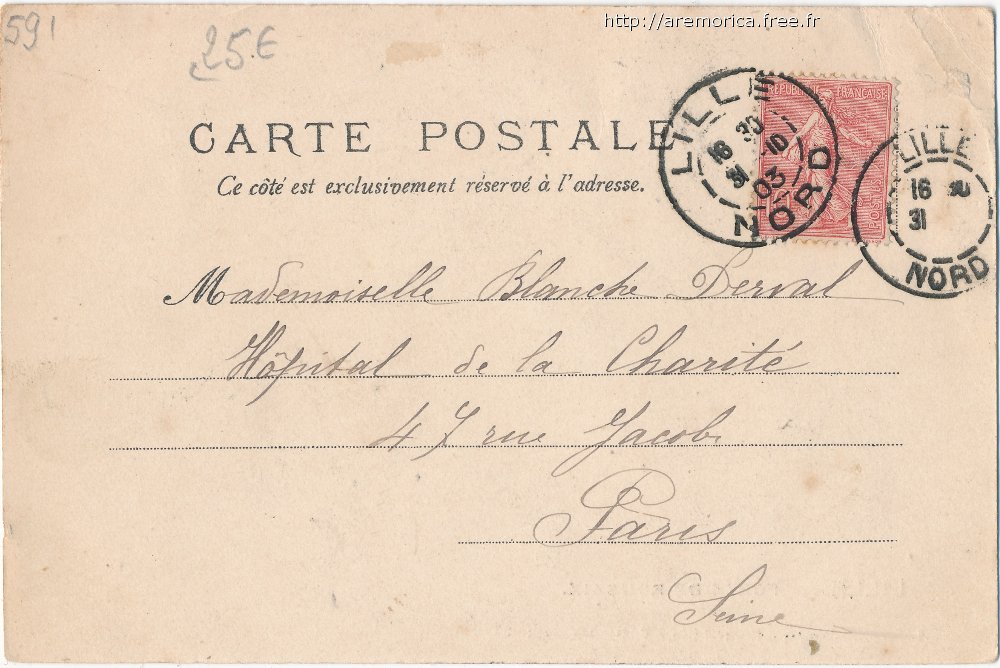 http://aremorica.free.fr
591
25.€
RÉPUBLIQUE FRANÇAISE
LILLE
16 30
31 -10
03
NORD
POSTES
LILLE
16 30
31
NORD
CARTE POSTALE
Ce côté est exclusivement réservé à l'adresse.
Mademoiselle Blanche Derval
Hôpital de la Charité
47 rue Jacob
Paris
Seine